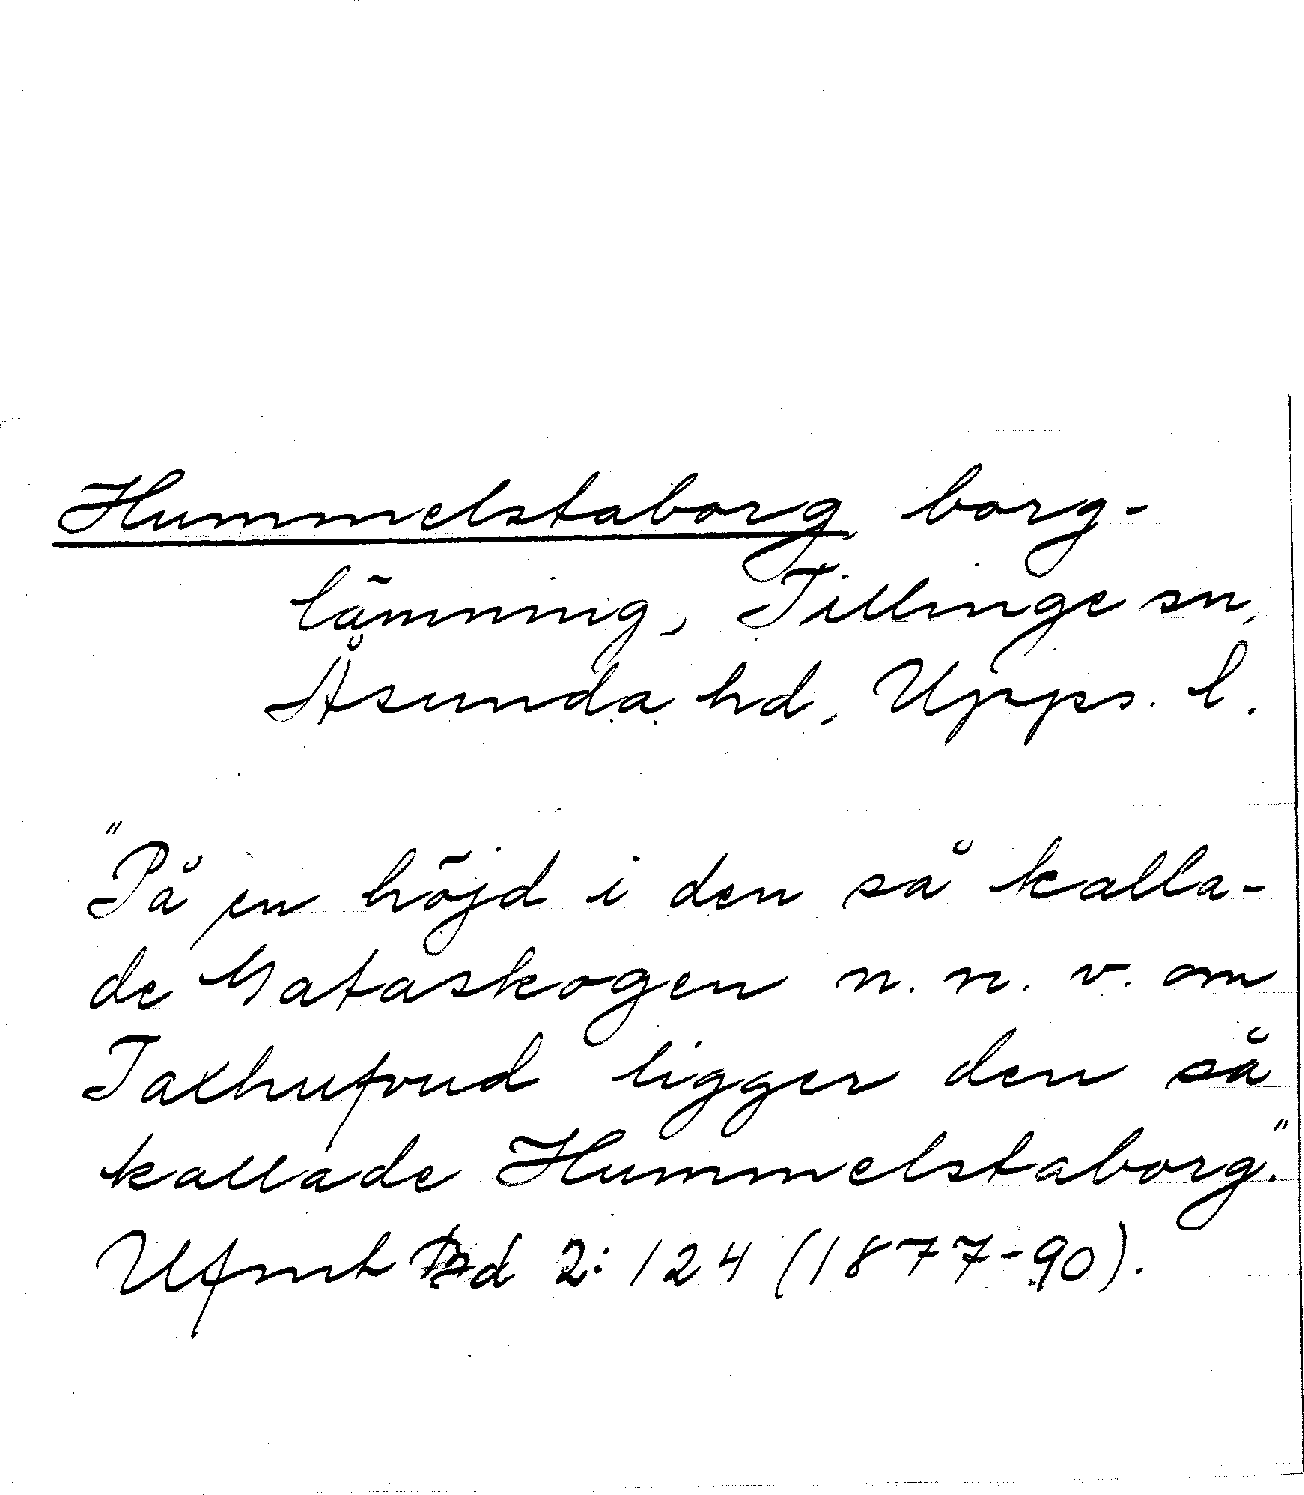 Hummelstaborg borg-
lämning, Tillinge sn,
Åsunda hd, Upps. l.
"På en höjd i den så kalla-
de Gataskogen n. n. v. om
Talhufvud ligger den så
kallade Hummelstaborg."
Ufmt Bd 2: 124 (1877-90).